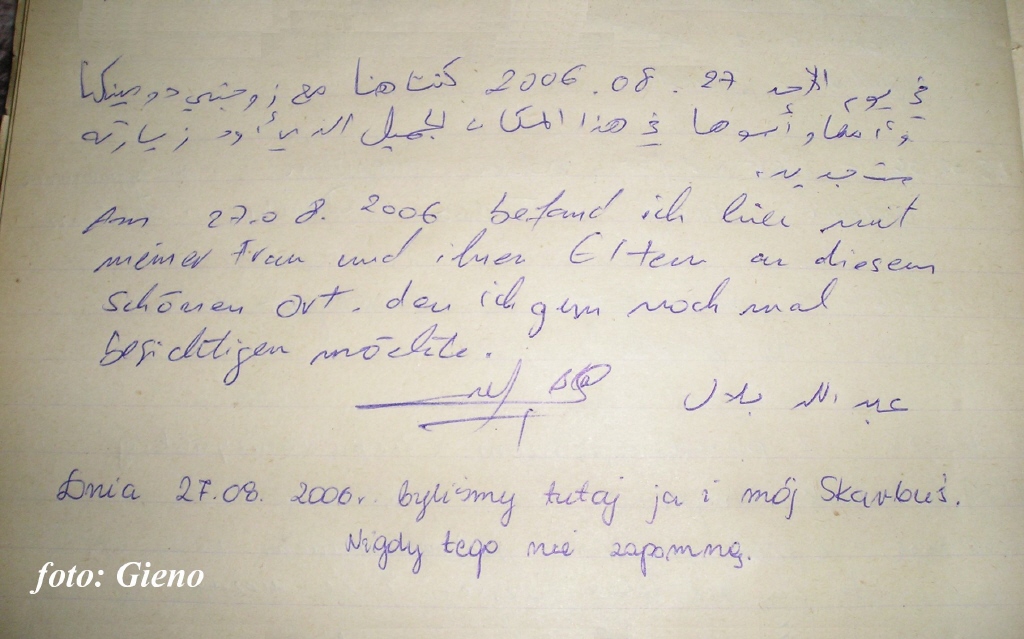 في يوم الأحد 27 . 08 . 2006 كنت هنا مع زوجتي دومينيكا
و أمها و أبوها في هذا المكان الجميل الذي أود زيارته
من جديد.
Am 27.08. 2006 befand ich hier mit
meiner Frau und ihren Eltern an diesem
schönen Ort. den ich gern noch mal
besichtigen möchte.
عبد الله بلال
Dnia 27.08. 2006r. byliśmy tutaj ja i mój Skarbuś.
Nigdy tego nie zapomnę.
foto: Gieno